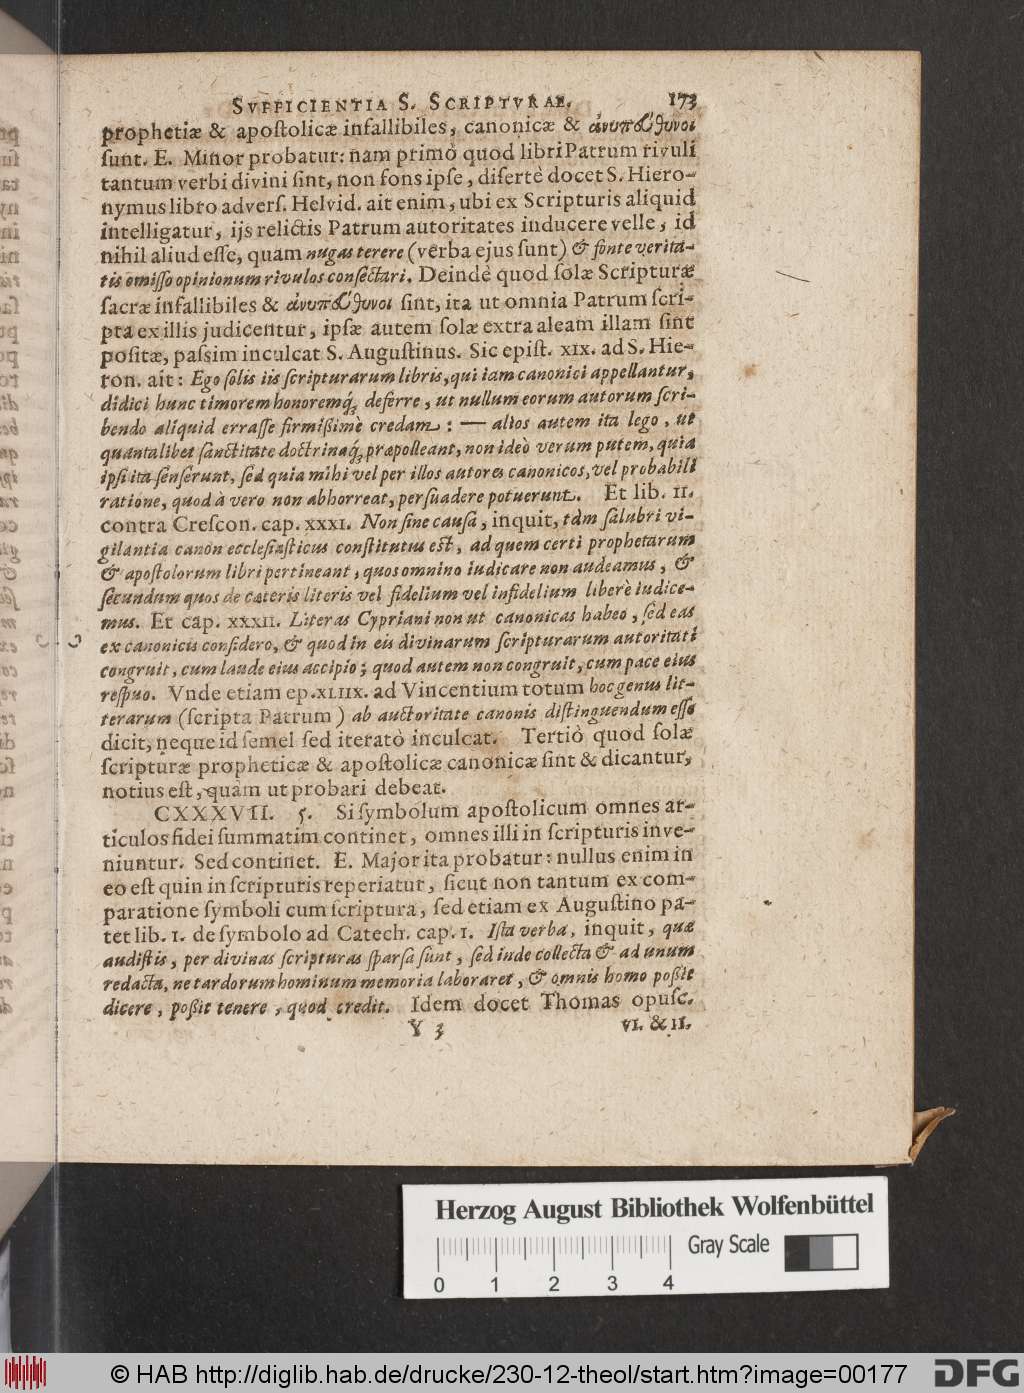 SVFFICIENTIA S. SCRIPTVRAE. 173
prophetiæ & apoſtolicæ infallibiles, canonicæ & ἀνυπεύθυνοι
ſunt. E. Minor probatur: nam primò quod libri Patrum rivuli
tantum verbi divini ſint, non fons ipſe, diſertè docet S. Hiero-
nymus libro adverſ. Helvid. ait enim, ubi ex Scripturis aliquid
intelligatur, ijs relictis Patrum autoritates inducere velle, id
nihil aliud eſſe, quàm nugas terere (verba ejus ſunt) & fonte verita-
tis omiſſo opinionum rivulos conſectari. Deindè quod ſolæ Scripturæ
ſacræ infallibiles & ἀνυπεύθυνοι ſint, ita ut omnia Patrum ſcri-
pta ex illis judicentur, ipſæ autem ſolæ extra aleam illam ſint
poſitæ, paſsim inculcat S. Auguſtinus. Sic epiſt. XIX. ad S. Hie-
ron. ait: Ego ſolis iis ſcripturarum libris, qui iam canonici appellantur,
didici hunc timorem honoremq́; deferre, ut nullum eorum autorum ſcri-
bendo aliquid erraſſe firmißimè credam: — alios autem ita lego, ut
quantalibet ſanctitate doctrinaq́; præpolleant, non ideò verum putem, quia
ipſi ita ſenſerunt, ſed quia mihi vel per illos autores canonicos, vel probabili
ratione, quod à vero non abhorreat, perſuadere potuerunt. Et lib. II.
contra Creſcon. cap. XXXI. Non ſine cauſa, inquit, tàm ſalubri vi-
gilantia canon eccleſiaſticus conſtitutus eſt, ad quem certi prophetarum
& apoſtolorum libri pertineant, quos omnino iudicare non audeamus, &
ſecundum quos de cæteris literis vel fidelium vel infidelium liberè iudice-
mus. Et cap. XXXII. Literas Cypriani non ut canonicas habeo, ſed eas
ex canonicis conſidero, & quod in eis divinarum ſcripturarum autoritati
congruit, cum laude eius accipio; quod autem non congruit, cum pace eius
reſpuo. Vnde etiam ep. XLIIX. ad Vincentium totum hoc genus lit-
terarum (ſcripta Patrum) ab auctoritate canonis diſtinguendum eſſe
dicit, neque id ſemel ſed iteratò inculcat. Tertiò quod ſolæ
ſcripturæ propheticæ & apoſtolicæ canonicæ ſint & dicantur,
notius eſt, quàm ut probari debeat.
CXXXVII. 5. Si ſymbolum apoſtolicum omnes ar-
ticulos fidei ſummatim continet, omnes illi in ſcripturis inve-
niuntur. Sed continet. E. Major ita probatur: nullus enim in
eo eſt quin in ſcripturis reperiatur, ſicut non tantum ex com-
paratione ſymboli cum ſcriptura, ſed etiam ex Auguſtino pa-
tet lib. I. de ſymbolo ad Catech. cap. I. Iſta verba, inquit, quæ
audiſtis, per divinas ſcripturas ſparſa ſunt, ſed inde collecta & ad unum
redacta, ne tardorum hominum memoria laboraret, & omnis homo poßit
dicere, poßit tenere, quod credit. Idem docet Thomas opuſc.
Y 3 VI. & II.
Herzog August Bibliothek Wolfenbüttel
Gray Scale
0 1 2 3 4
© HAB http://diglib.hab.de/drucke/230-12-theol/start.htm?image=00177 DFG